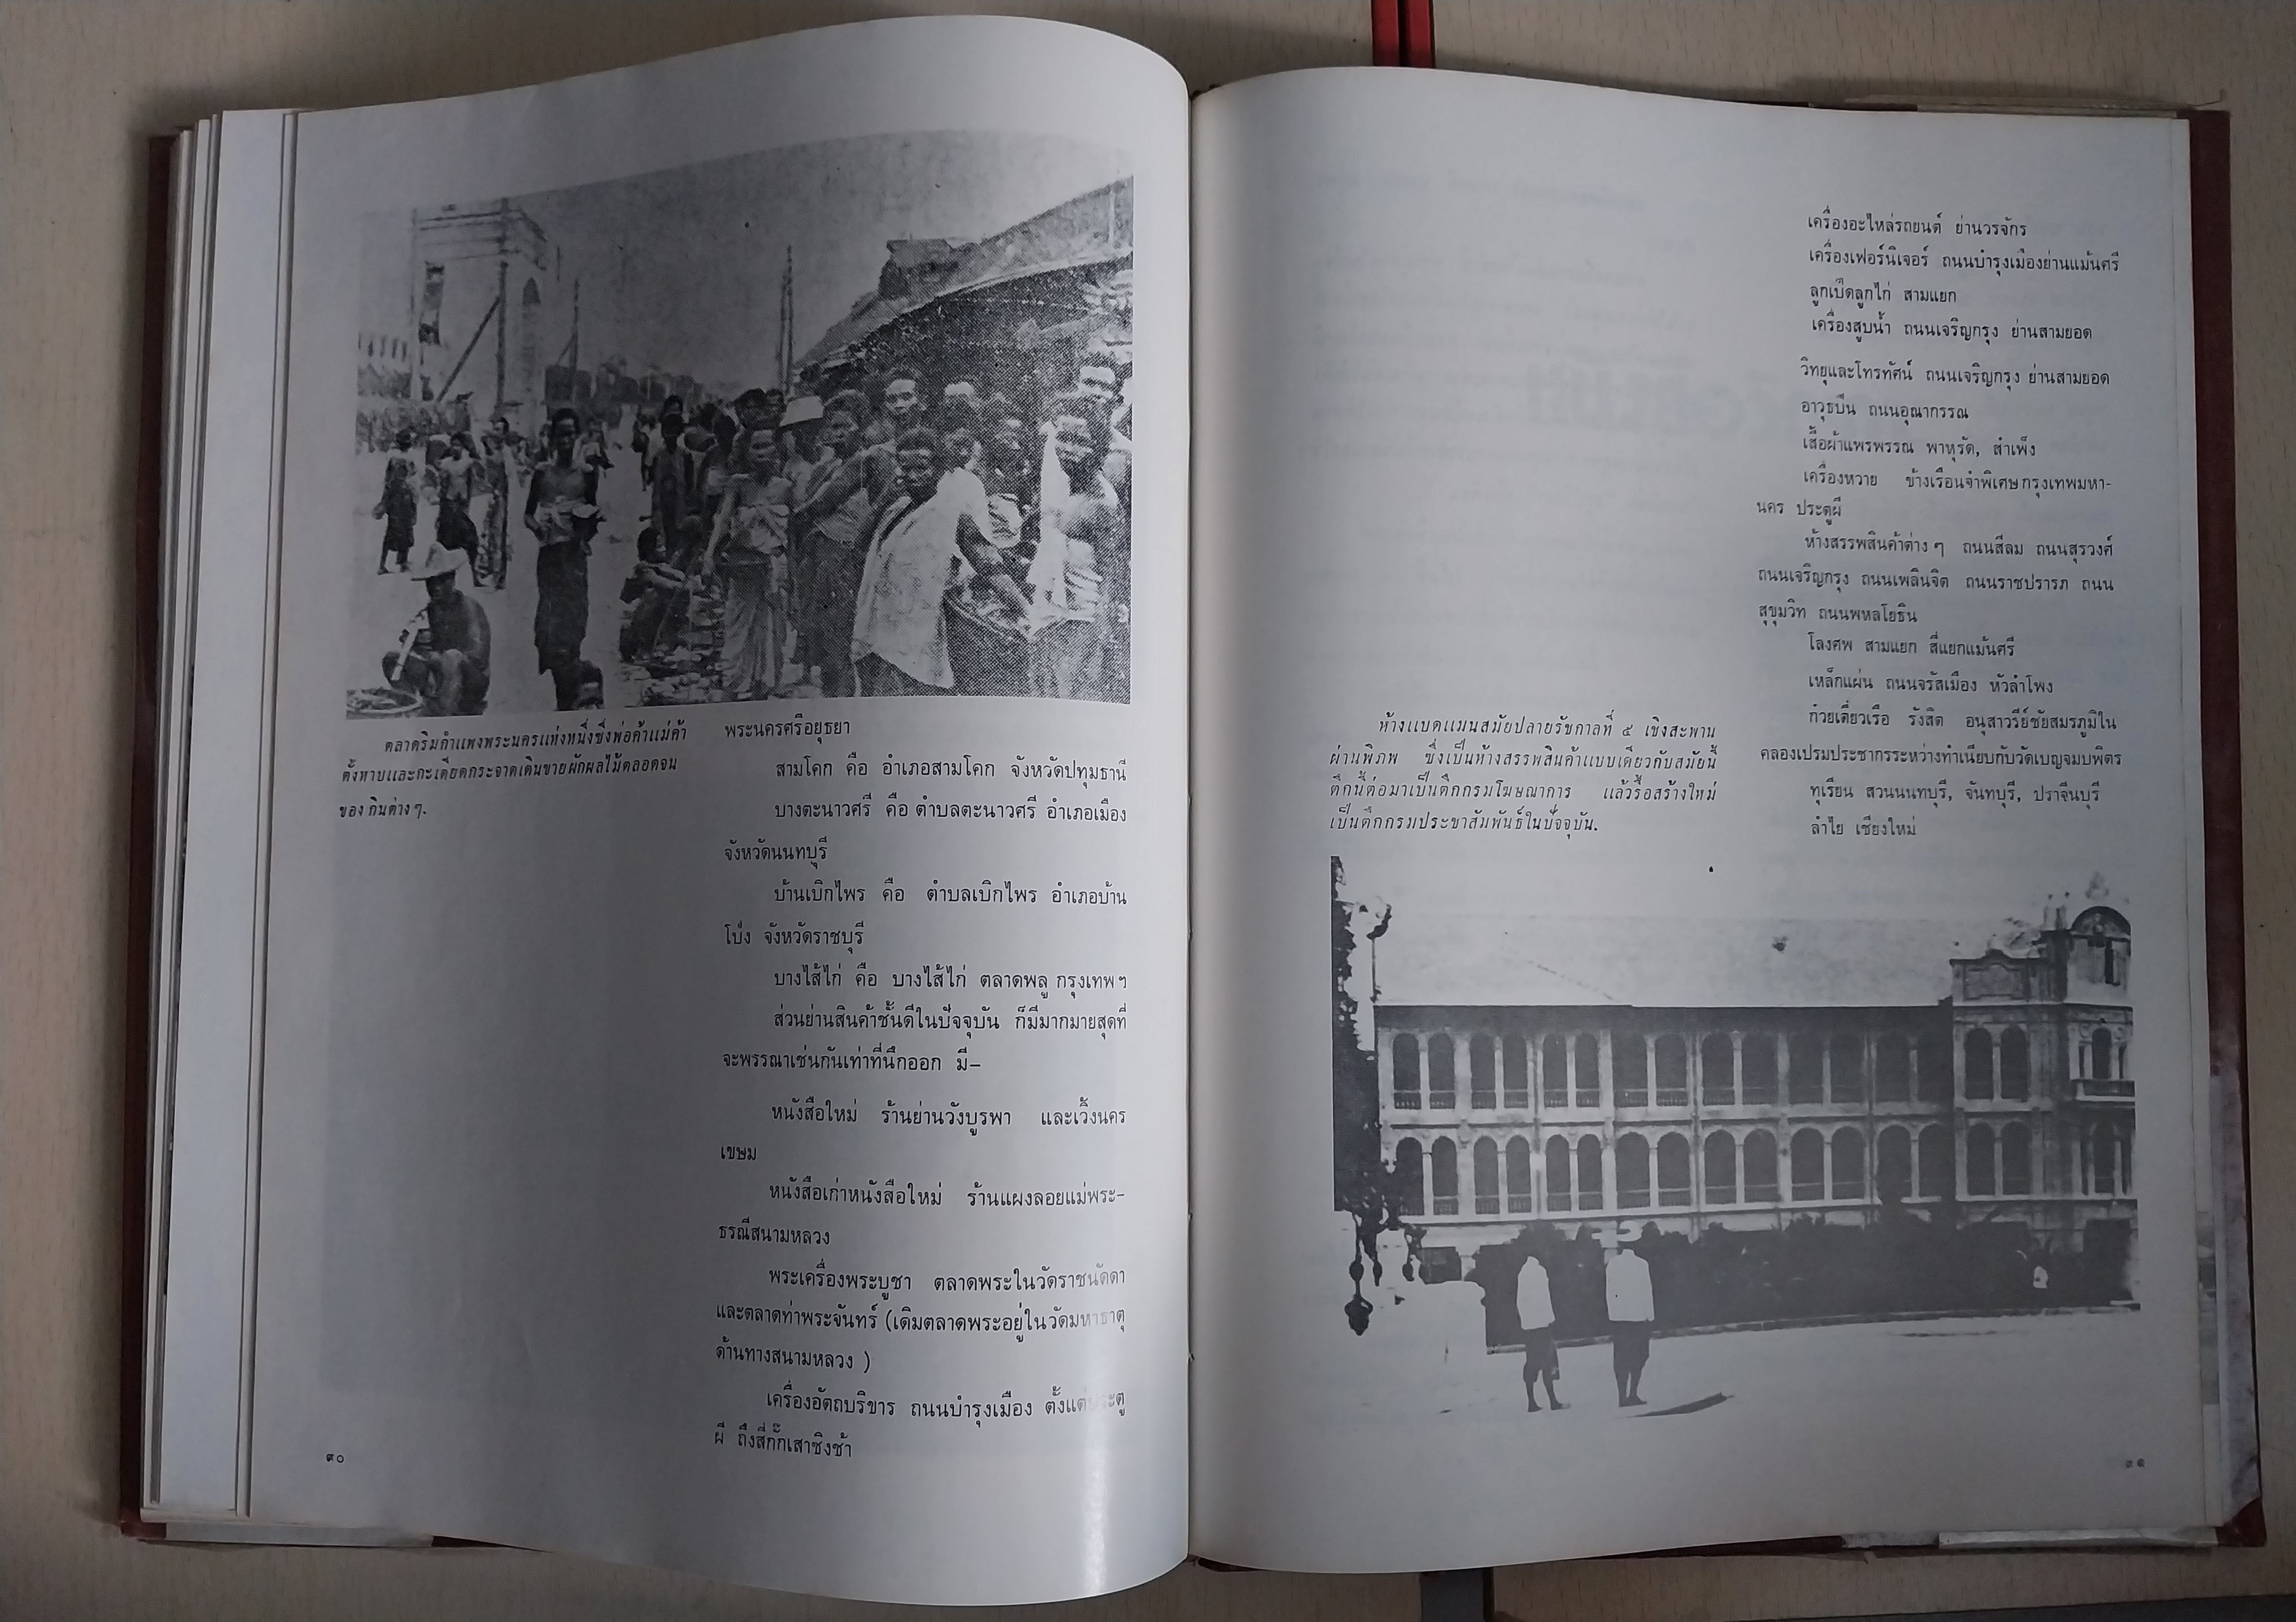 ตลาดริมกำแพงพระนครแห่งหนึ่งซึ่งพ่อค้าแม่ค้า
ตั้งหาบและกะเดียดกระจาดเดินขายผักผลไม้ตลอดจน
ของกินต่างๆ.
พระนครศรีอยุธยา
สามโคก คือ อำเภอสามโคก จังหวัดปทุมธานี
บางตะนาวศรี คือ ตำบลตะนาวศรี อำเภอเมือง
จังหวัดนนทบุรี
บ้านเบิกไพร คือ ตำบลเบิกไพร อำเภอบ้าน
โป่ง จังหวัดราชบุรี
บางไส้ไก่ คือ บางไส้ไก่ ตลาดพลู กรุงเทพฯ
ส่วนย่านสินค้าชั้นดีในปัจจุบัน ก็มีมากมายสุดที่
จะพรรณาเช่นกันเท่าที่นึกออก มี–
หนังสือใหม่ ร้านย่านวังบูรพา และเวิ้งนคร
เขษม
หนังสือเก่าหนังสือใหม่ ร้านแผงลอยแม่พระ–
ธรณีสนามหลวง
พระเครื่องพระบูชา ตลาดพระในวัดราชนัดดา
และตลาดท่าพระจันทร์ (เดิมตลาดพระอยู่ในวัดมหาธาตุ
ด้านทางสนามหลวง )
เครื่องอัตถบริขาร ถนนบำรุงเมือง ตั้งแต่ประตู
ผี ถึงสี่กั๊กเสาชิงช้า
๙๐
ห้างแบดแมนสมัยปลายรัชกาลที่ ๕ เชิงสะพาน
ผ่านพิภพ ซึ่งเป็นห้างสรรพสินค้าแบบเดียวกับสมัยนี้
ตึกนี้ต่อมาเป็นตึกกรมโฆษณาการ แล้วรื้อสร้างใหม่
เป็นตึกกรมประชาสัมพันธ์ในปัจจุบัน.
เครื่องอะไหล่รถยนต์ ย่านวรจักร
เครื่องเฟอร์นิเจอร์ ถนนบำรุงเมืองย่านแม้นศรี
ลูกเป็ดลูกไก่ สามแยก
เครื่องสูบน้ำ ถนนเจริญกรุง ย่านสามยอด
วิทยุและโทรทัศน์ ถนนเจริญกรุง ย่านสามยอด
อาวุธปืน ถนนอุณากรรณ
เสื้อผ้าแพรพรรณ พาหุรัด, สำเพ็ง
เครื่องหวาย ข้างเรือนจำพิเศษกรุงเทพมหา–
นคร ประตูผี
ห้างสรรพสินค้าต่างๆ ถนนสีลม ถนนสุรวงศ์
ถนนเจริญกรุง ถนนเพลินจิต ถนนราชปรารภ ถนน
สุขุมวิท ถนนพหลโยธิน
โลงศพ สามแยก สี่แยกแม้นศรี
เหล็กแผ่น ถนนจรัสเมือง หัวลำโพง
ก๋วยเตี๋ยวเรือ รังสิต อนุสาวรีย์ชัยสมรภูมิใน
คลองเปรมประชากรระหว่างทำเนียบกับวัดเบญจมบพิตร
ทุเรียน สวนนนทบุรี, จันทบุรี, ปราจีนบุรี
ลำไย เชียงใหม่
๙๑